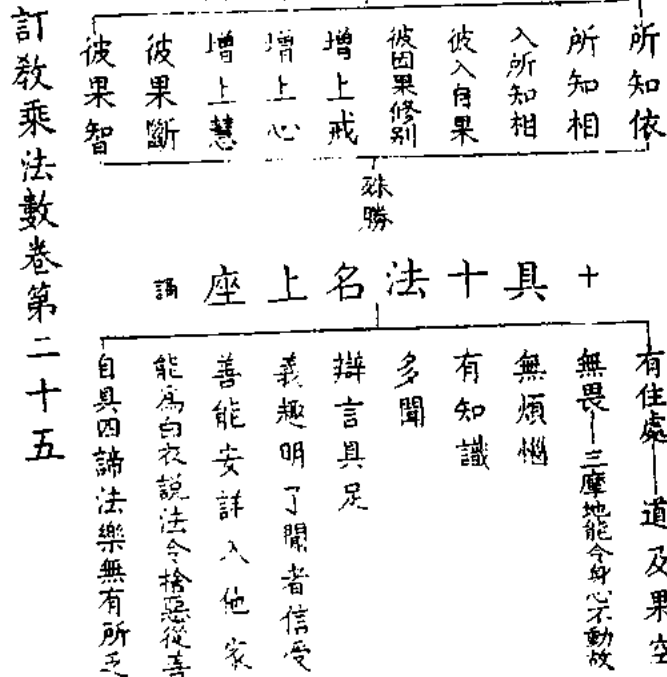 所知依
所知相
入所知相
彼入自果
彼因果修別
增上戒
增上心
增上慧
彼果斷
彼果智
殊勝
十具十法名上座
有住處—道及果空
無畏—三摩地能令身心不動故
無煩惱
有知識
多聞
辯言具足
義趣明了聞者信受
善能安詳入他家
能為白衣說法令捨惡從善
自具四諦法樂無有所乏
訂教乘法數卷第二十五